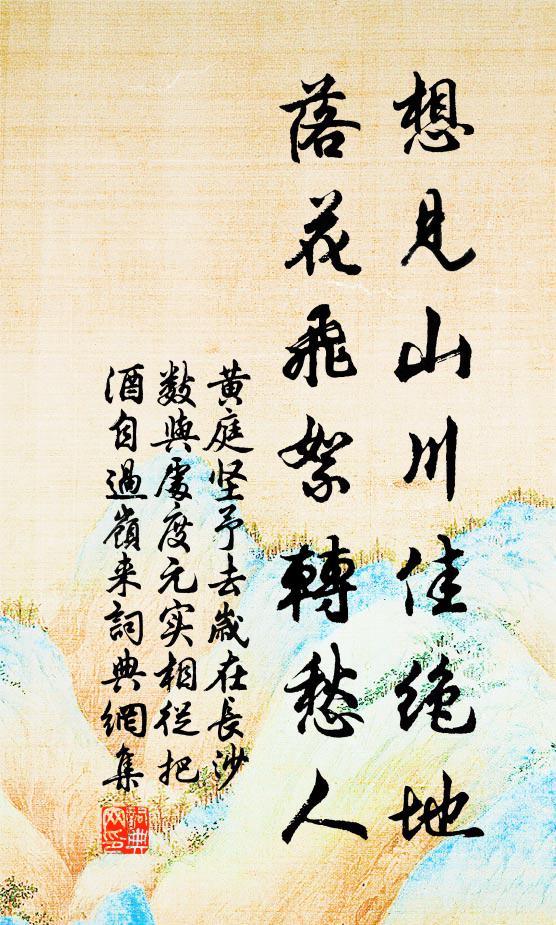 想見山川佳絶地
落花飛絮轉愁人
黄庭坚予去歲在長沙
数與處度元实相從把
酒自過嶺来詞典網集
詞典
网印